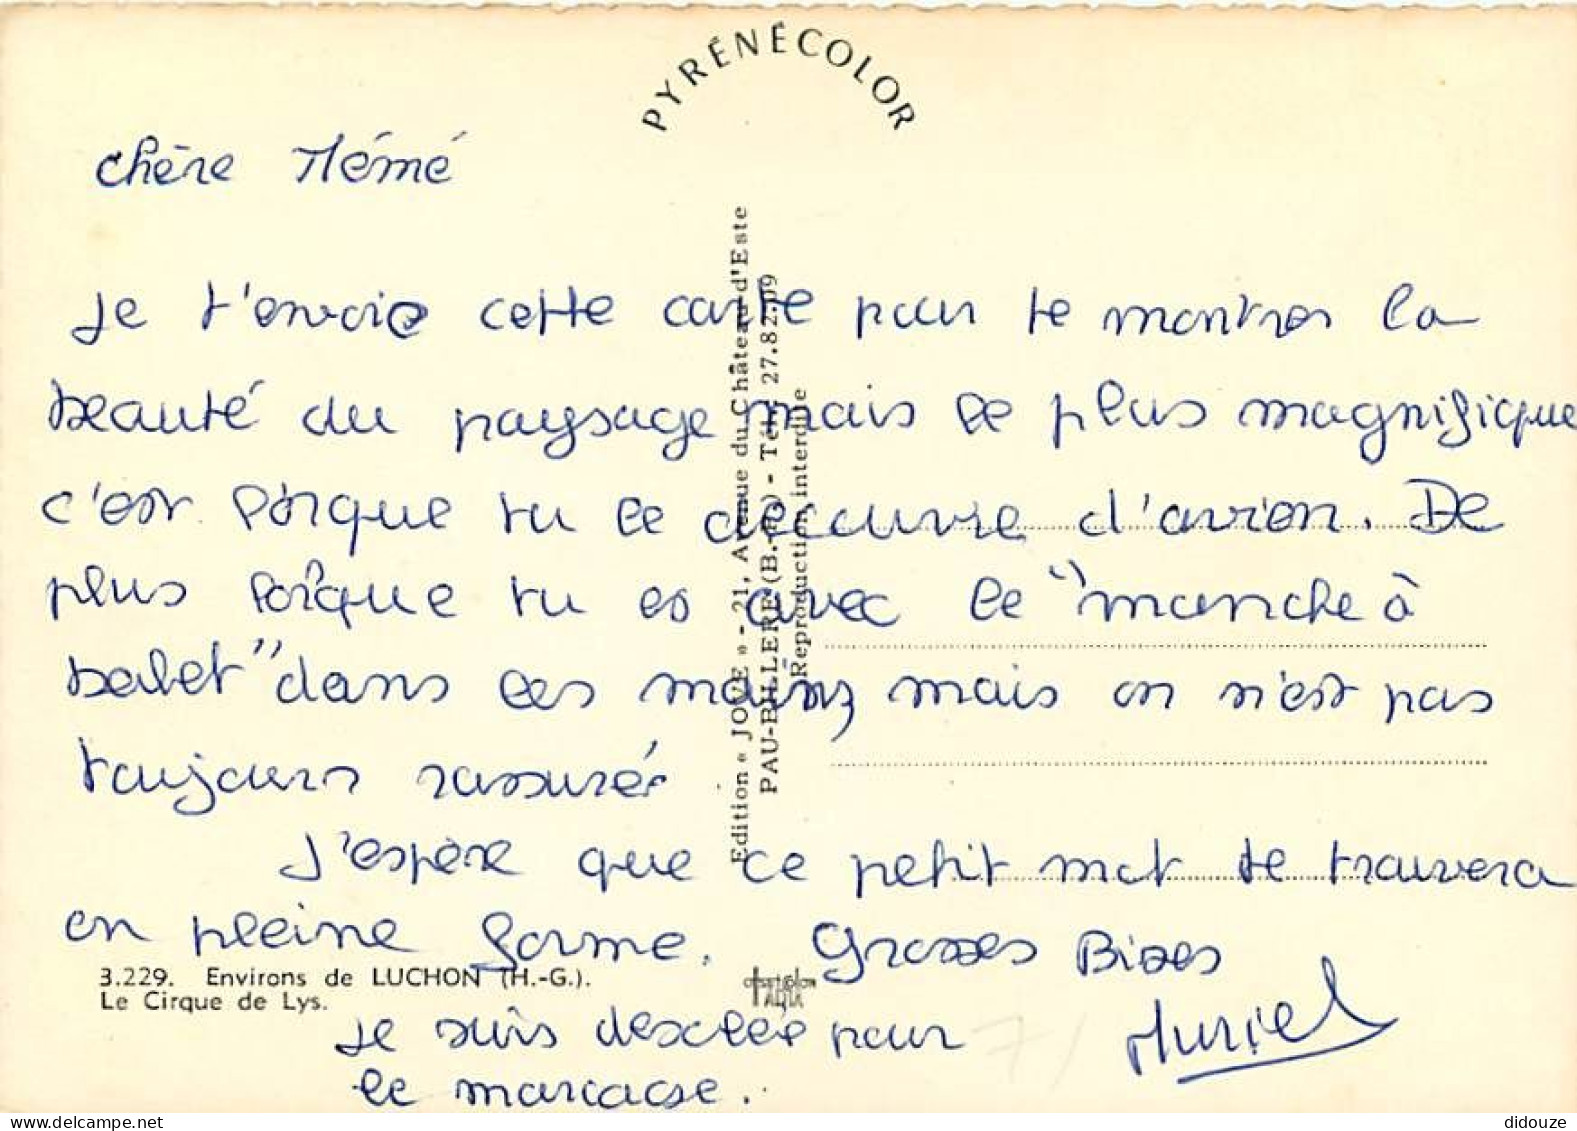 PYRÉNÉCOLOR
Chère Mémé
Je t'envoie cette carte pour te montrer la
beauté du paysage mais le plus magnifique
c'est lorsque tu le découvre d'avion. De
plus lorsque tu es avec le "manche à
balet" dans les mains mais on n'est pas
toujours rassuré.
J'espère que ce petit mot te trouvera
en pleine forme. Grosses Bises
Je suis desolée pour
le marcage.
Muriel
Edition « JOVE » - 21, Avenue du Château d'Este
PAU-BILLERE (B.-P.) - Tél. 27.82.09
Reproduction interdite
3.229. Environs de LUCHON (H.-G.).
Le Cirque de Lys.
didouze
delcampe.net